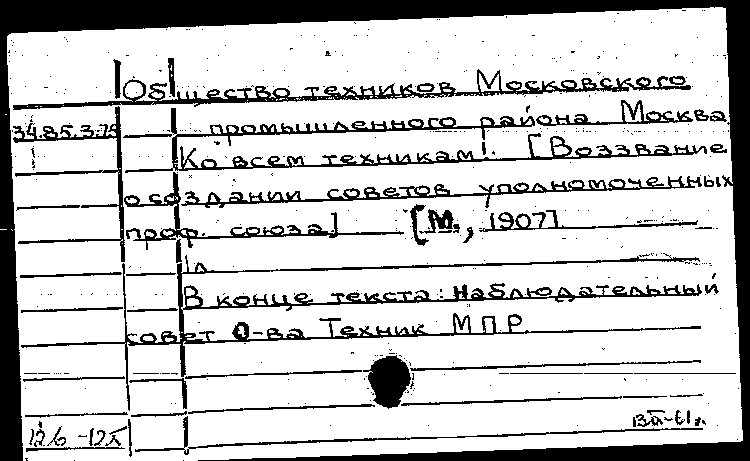 Общество техников Московского
34.85.3.75 промышленного района. Москва
Ко всем техникам!. [Воззвание
о создании советов уполномоченных
проф. союза] [М., 1907].
1л.
В конце текста: Наблюдательный
совет О-ва Техник МПР.